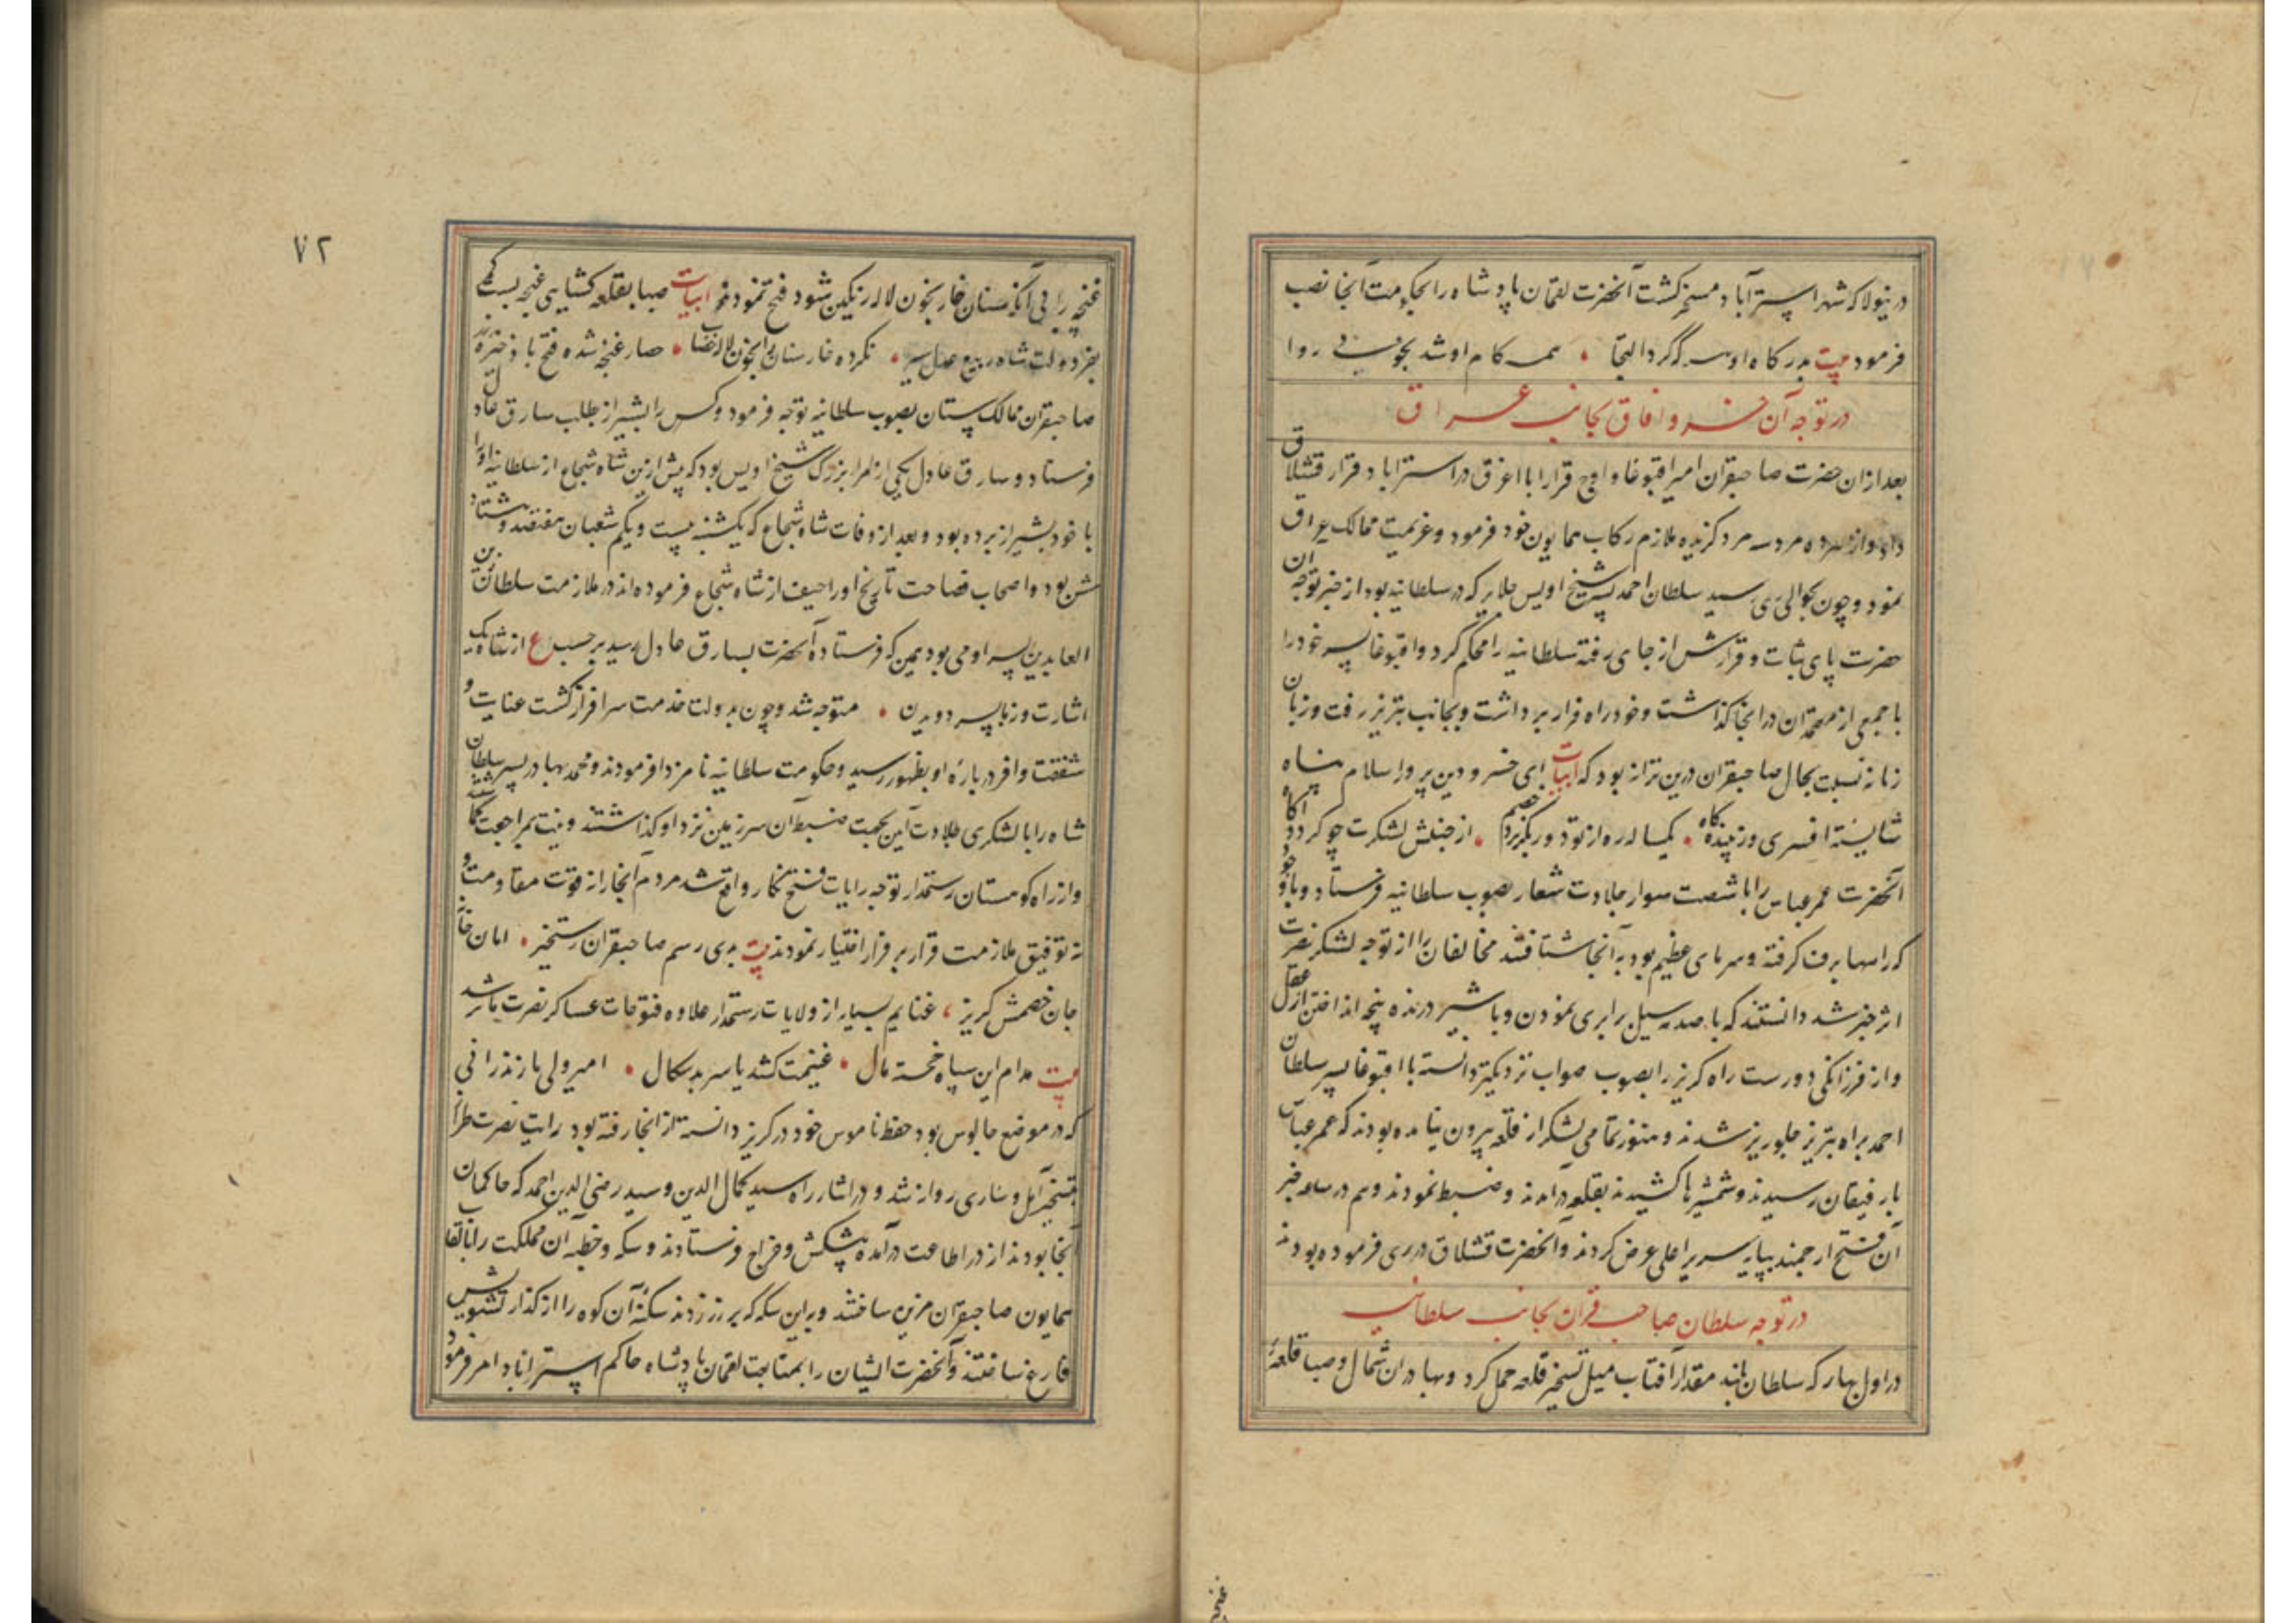 درینولا که شهر استراباد مسخر کشت آنحضرت لقمان پادشاه را بحکومت آنجا نصب
فرمود بیت بدرکاه او هر که کرد التجا همه کام او شد بخوبی روا
در توجه آن خسرو آفاق بجانب عراق
بعد ازان حضرت صاحبقران امیر اقبوغا و اوج قرا را با اغرق در استراباد قرار قشلاق
داد و از هر ده مرد سه مرد کزیده ملازم رکاب همایون خود فرمود و عزیمت ممالک عراق
نمود و چون بحوالی ری رسید سلطان احمد پسر شیخ اویس جلایر که در سلطانیه بود از خبر توجه ان
حضرت پای ثبات و قرارش از جای رفته سلطانیه را محکم کرد و اقبوغا پسر خود را
با جمعی از معتمدان در انجا کذاشت و خود راه فرار برداشت و بجانب تبریز رفت و زبان
زمانه نسبت بحال صاحبقران درین ترانه بود که ابیات ای خسرو دین پرور اسلام پناه
شایسته افسری و زیبنده کاه یکساله ره از تو دور بکریزد خصم از جنبش لشکرت چو کردد آکاه
آنحضرت عمر عباس را با شصت سوار جلادت شعار بصوب سلطانیه فرستاد و باوجود
که راهها برف کرفته و سرمای عظیم بود به آنجا شتافتند مخالفان را از توجه لشکر نصرت
اثر خبر شد دانستند که با صدمه سیل برابری نمودن و با شیر درنده پنجه انداختن از عقل
و از فرزانکی دورست راه کریز را بصوب صواب نزدیکتر دانسته با اقبوغا پسر سلطان
احمد براه تبریز جلوریز شدند و هنوز تمامی لشکر از قلعه بیرون نیامده بودند که عمر عباس
با رفیقان رسیدند و شمشیرها کشیدند بقلعه درآمدند و ضبط نمودند و هم در ساعت خبر
آن فتح ارجمند بپایه سریر اعلی عرض کردند و آنحضرت قشلاق در ری فرموده بودند
در توجه سلطان صاحب قران بجانب سلطانیه
در اول بهار که سلطان بلند مقدار آفتاب میل تسخیر قلعه حمل کرد و بهادران شمال و صبا قلعهٔ
غنچه
۷۲
غنچه را بی آنکه سنان خار بخون لاله رنکین شود فتح نمودند ابیات صبا بقلعه کشایی غنچه بست کمر
بفر دولت شاه ربیع عدل سیر نکرده خار سنان را بخون لاله خضاب حصار غنچه شده فتح با ذخیرهٔ زر
صاحبقران ممالک ستان بصوب سلطانیه توجه فرمود و کس را بشیراز بطلب سارق عادل
فرستاد و سارق عادل یکی از امرا بزرک شیخ اویس بود که پیش ازین شاه شجاع از سلطانیه او را
با خود بشیراز برده بود و بعد از وفات شاه شجاع که یکشنبه بیست و یکم شعبان هفتصد و هشتاد
شش بود و اصحاب فصاحت تاریخ او را حیف از شاه شجاع فرموده‌اند در ملازمت سلطان زین
العابدین پسر او می بود همین که فرستاده آنحضرت بسارق عادل رسید برحسب ع از شاه یک
اشارت وز ما بسر دویدن متوجه شد و چون بدولت خدمت سرافراز کشت عنایت و
شفقت وافر دربارهٔ او بظهور رسید و حکومت سلطانیه نامزد او فرمودند و محمد بهادر پسر سلطان
شاه را با لشکری جلادت آیین بجهت ضبط آن سرزمین نزد او کذاشتند و نیت مراجعت
و از راه کوهستان رستمدار توجه رایات فتح نکار واقع شد مردم آنجا را نه قوت مقاومت و
نه توفیق ملازمت قرار بر فرار اختیار نمودند بیت بدی رسم صاحبقران رستخیز امان
جان خصمش کریز غنایم بسیار از ولایات رستمدار علاوه فتوحات عساکر نصرت مآثر شد
بیت مدام این سپاه خجسته مآل غنیمت کشد یا سر بدسکال امیر ولی مازندرانی
که در موضع جالوس بود حفظ ناموس خود در کریز دانسته از انجا رفته بود رایت نصرت طراز
بتسخیر آمل و ساری روانه شد و در اثناء راه سید کمال الدین و سید رضی الدین احمد که حاکمان
آنجا بودند از در اطاعت درآمده پیشکش و خراج فرستادند و سکه و خطبه آن مملکت را بالقاب
همایون صاحبقران مزین ساختند و براین سکه که بر زر زدند سکنهٔ آن کوه را از کذار تشویش
فارغ ساختند و آنحضرت ایشان را بمتابعت لقمان پادشاه حاکم استراباد امر فرمود